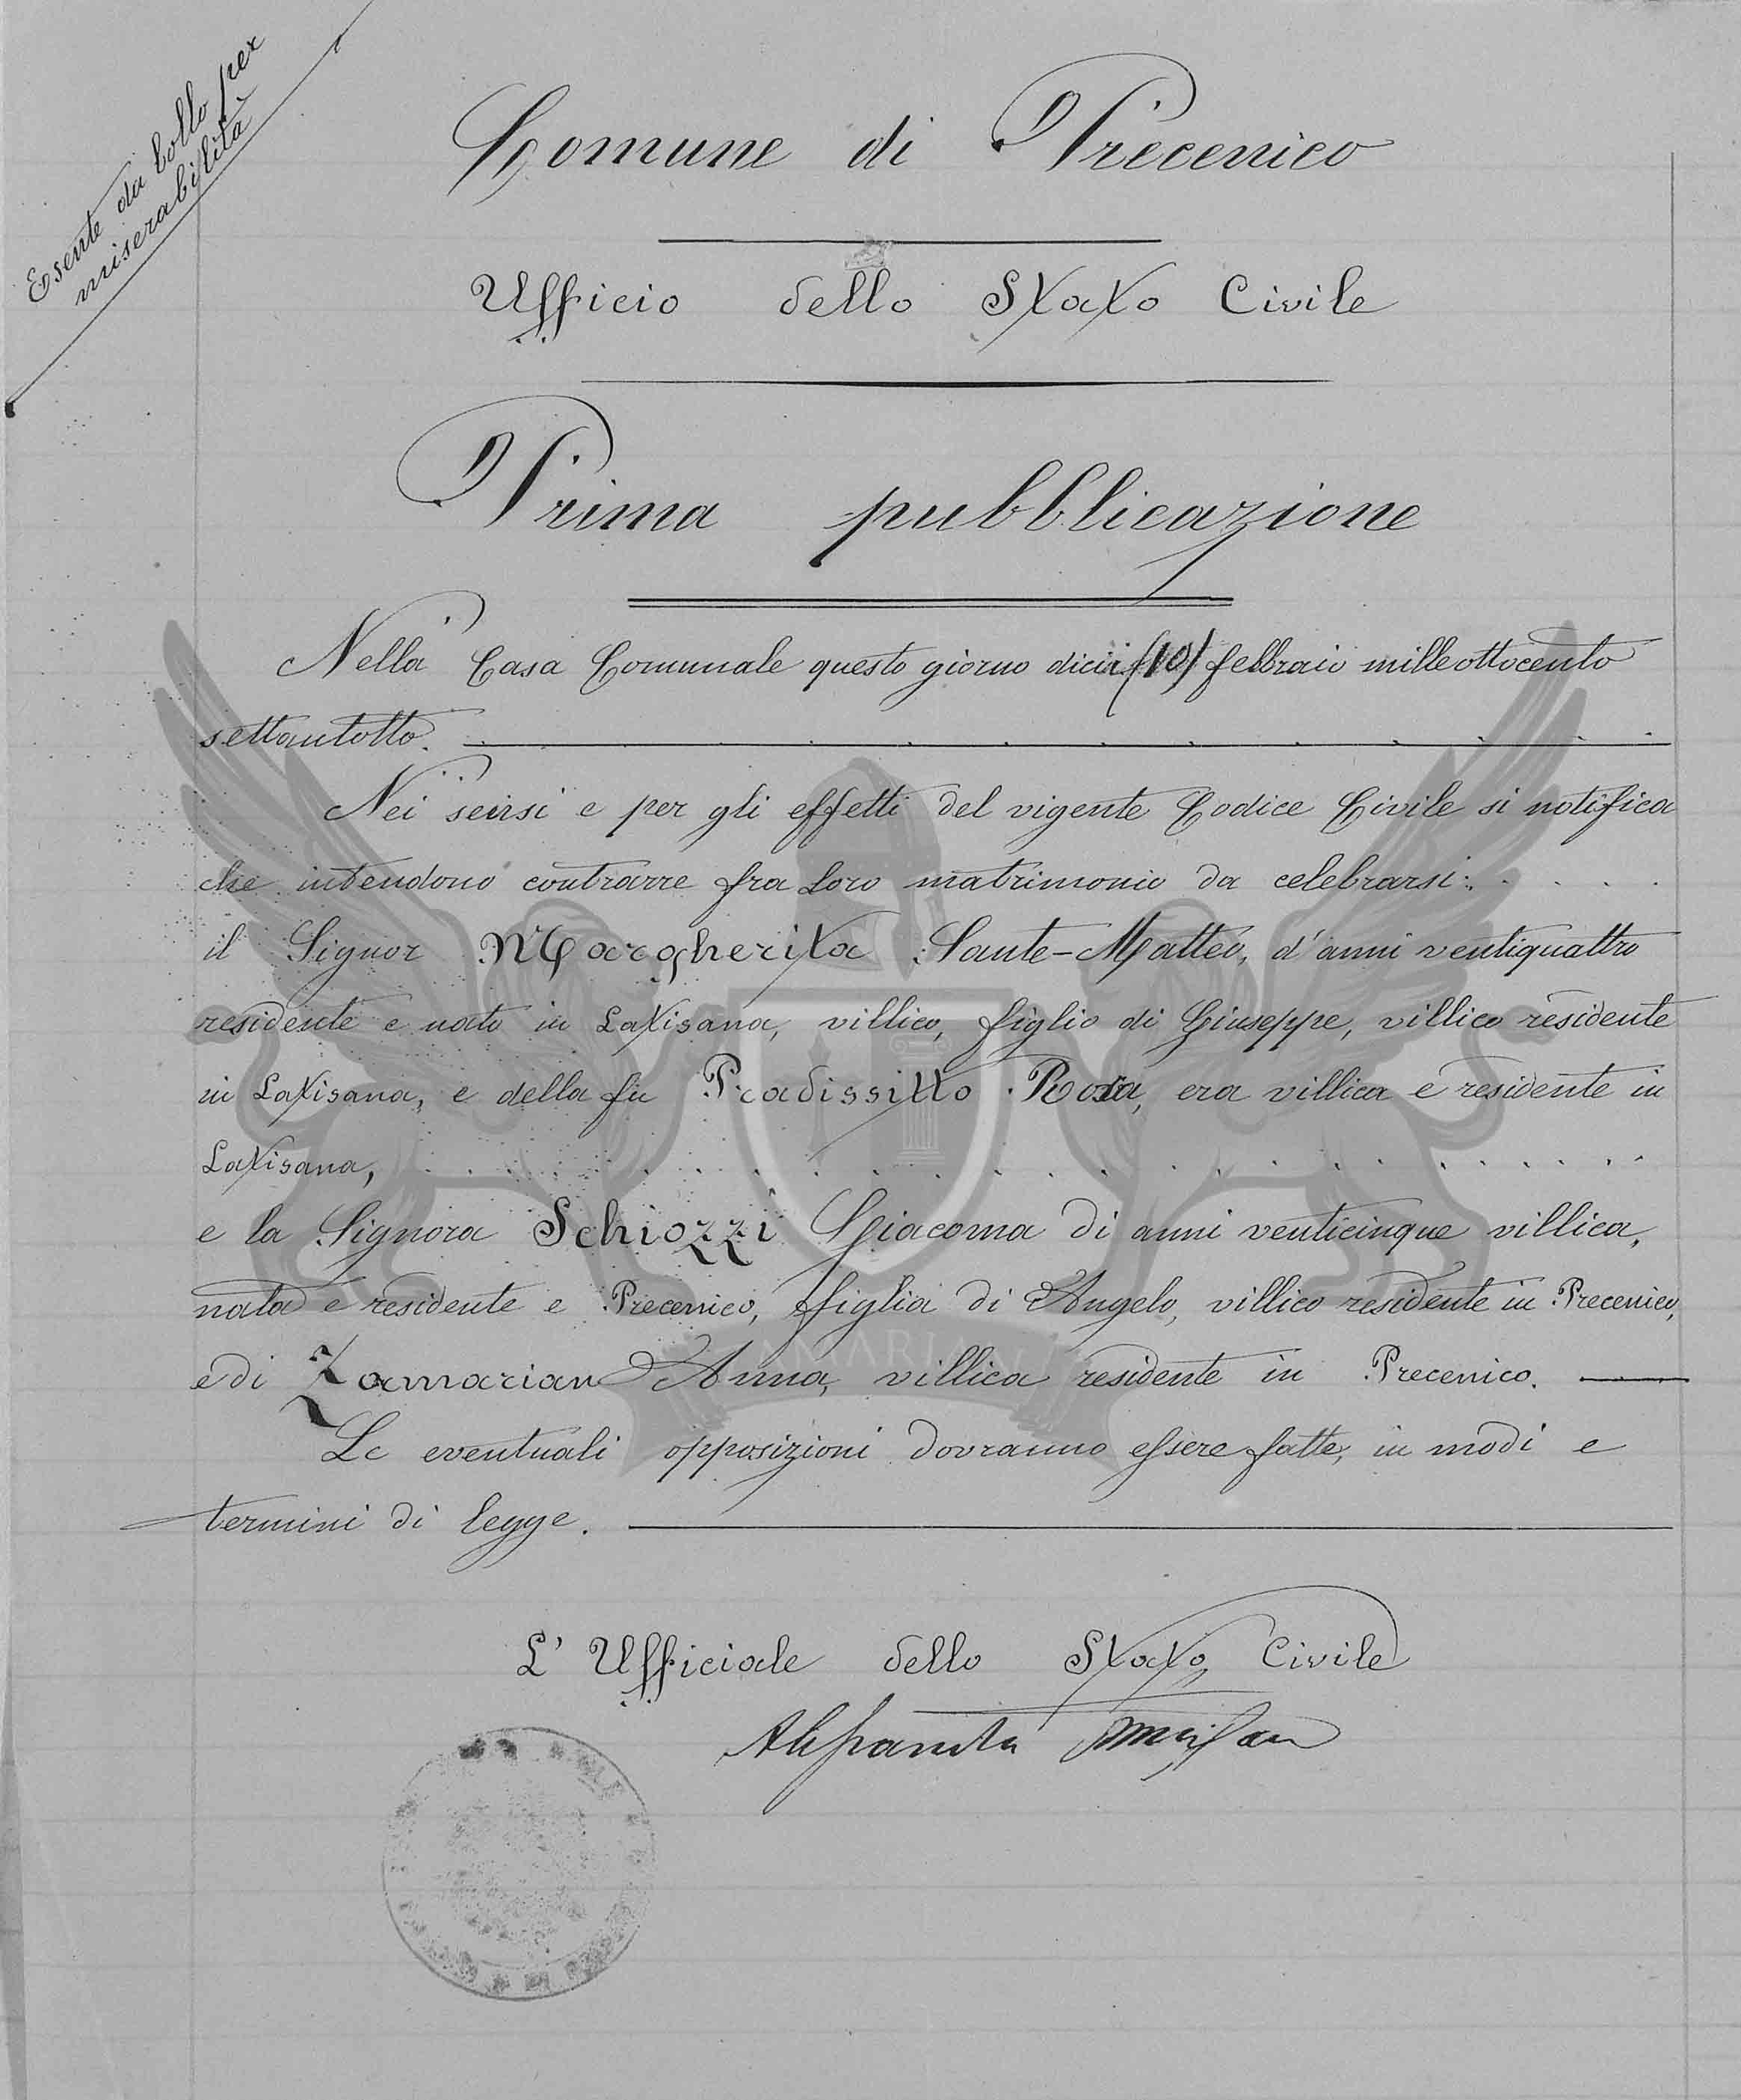 Esente da bollo per
miserabilità
Comune di Precenico
Ufficio dello Stato Civile
Prima pubblicazione
Nella Casa Comunale questo giorno dieci (10) febbraio milleottocento
settantotto.
Nei sensi e per gli effetti del vigente Codice Civile si notifica
che intendono contrarre fra loro matrimonio da celebrarsi:
il Signor Margherita Sante-Matteo, d'anni ventiquattro
residente e nato in Latisana, villico, figlio di Giuseppe, villico residente
in Latisana, e della fu Pradissitto Rosa, era villica e residente in
Latisana,
e la Signora Schiozzi Giacoma di anni venticinque villica,
nata e residente e Precenico, figlia di Angelo, villico residente in Precenico,
e di Zamarian Anna, villica residente in Precenico.
Le eventuali opposizioni dovranno essere fatte, in modi e
termini di legge.
L'Ufficiale dello Stato Civile